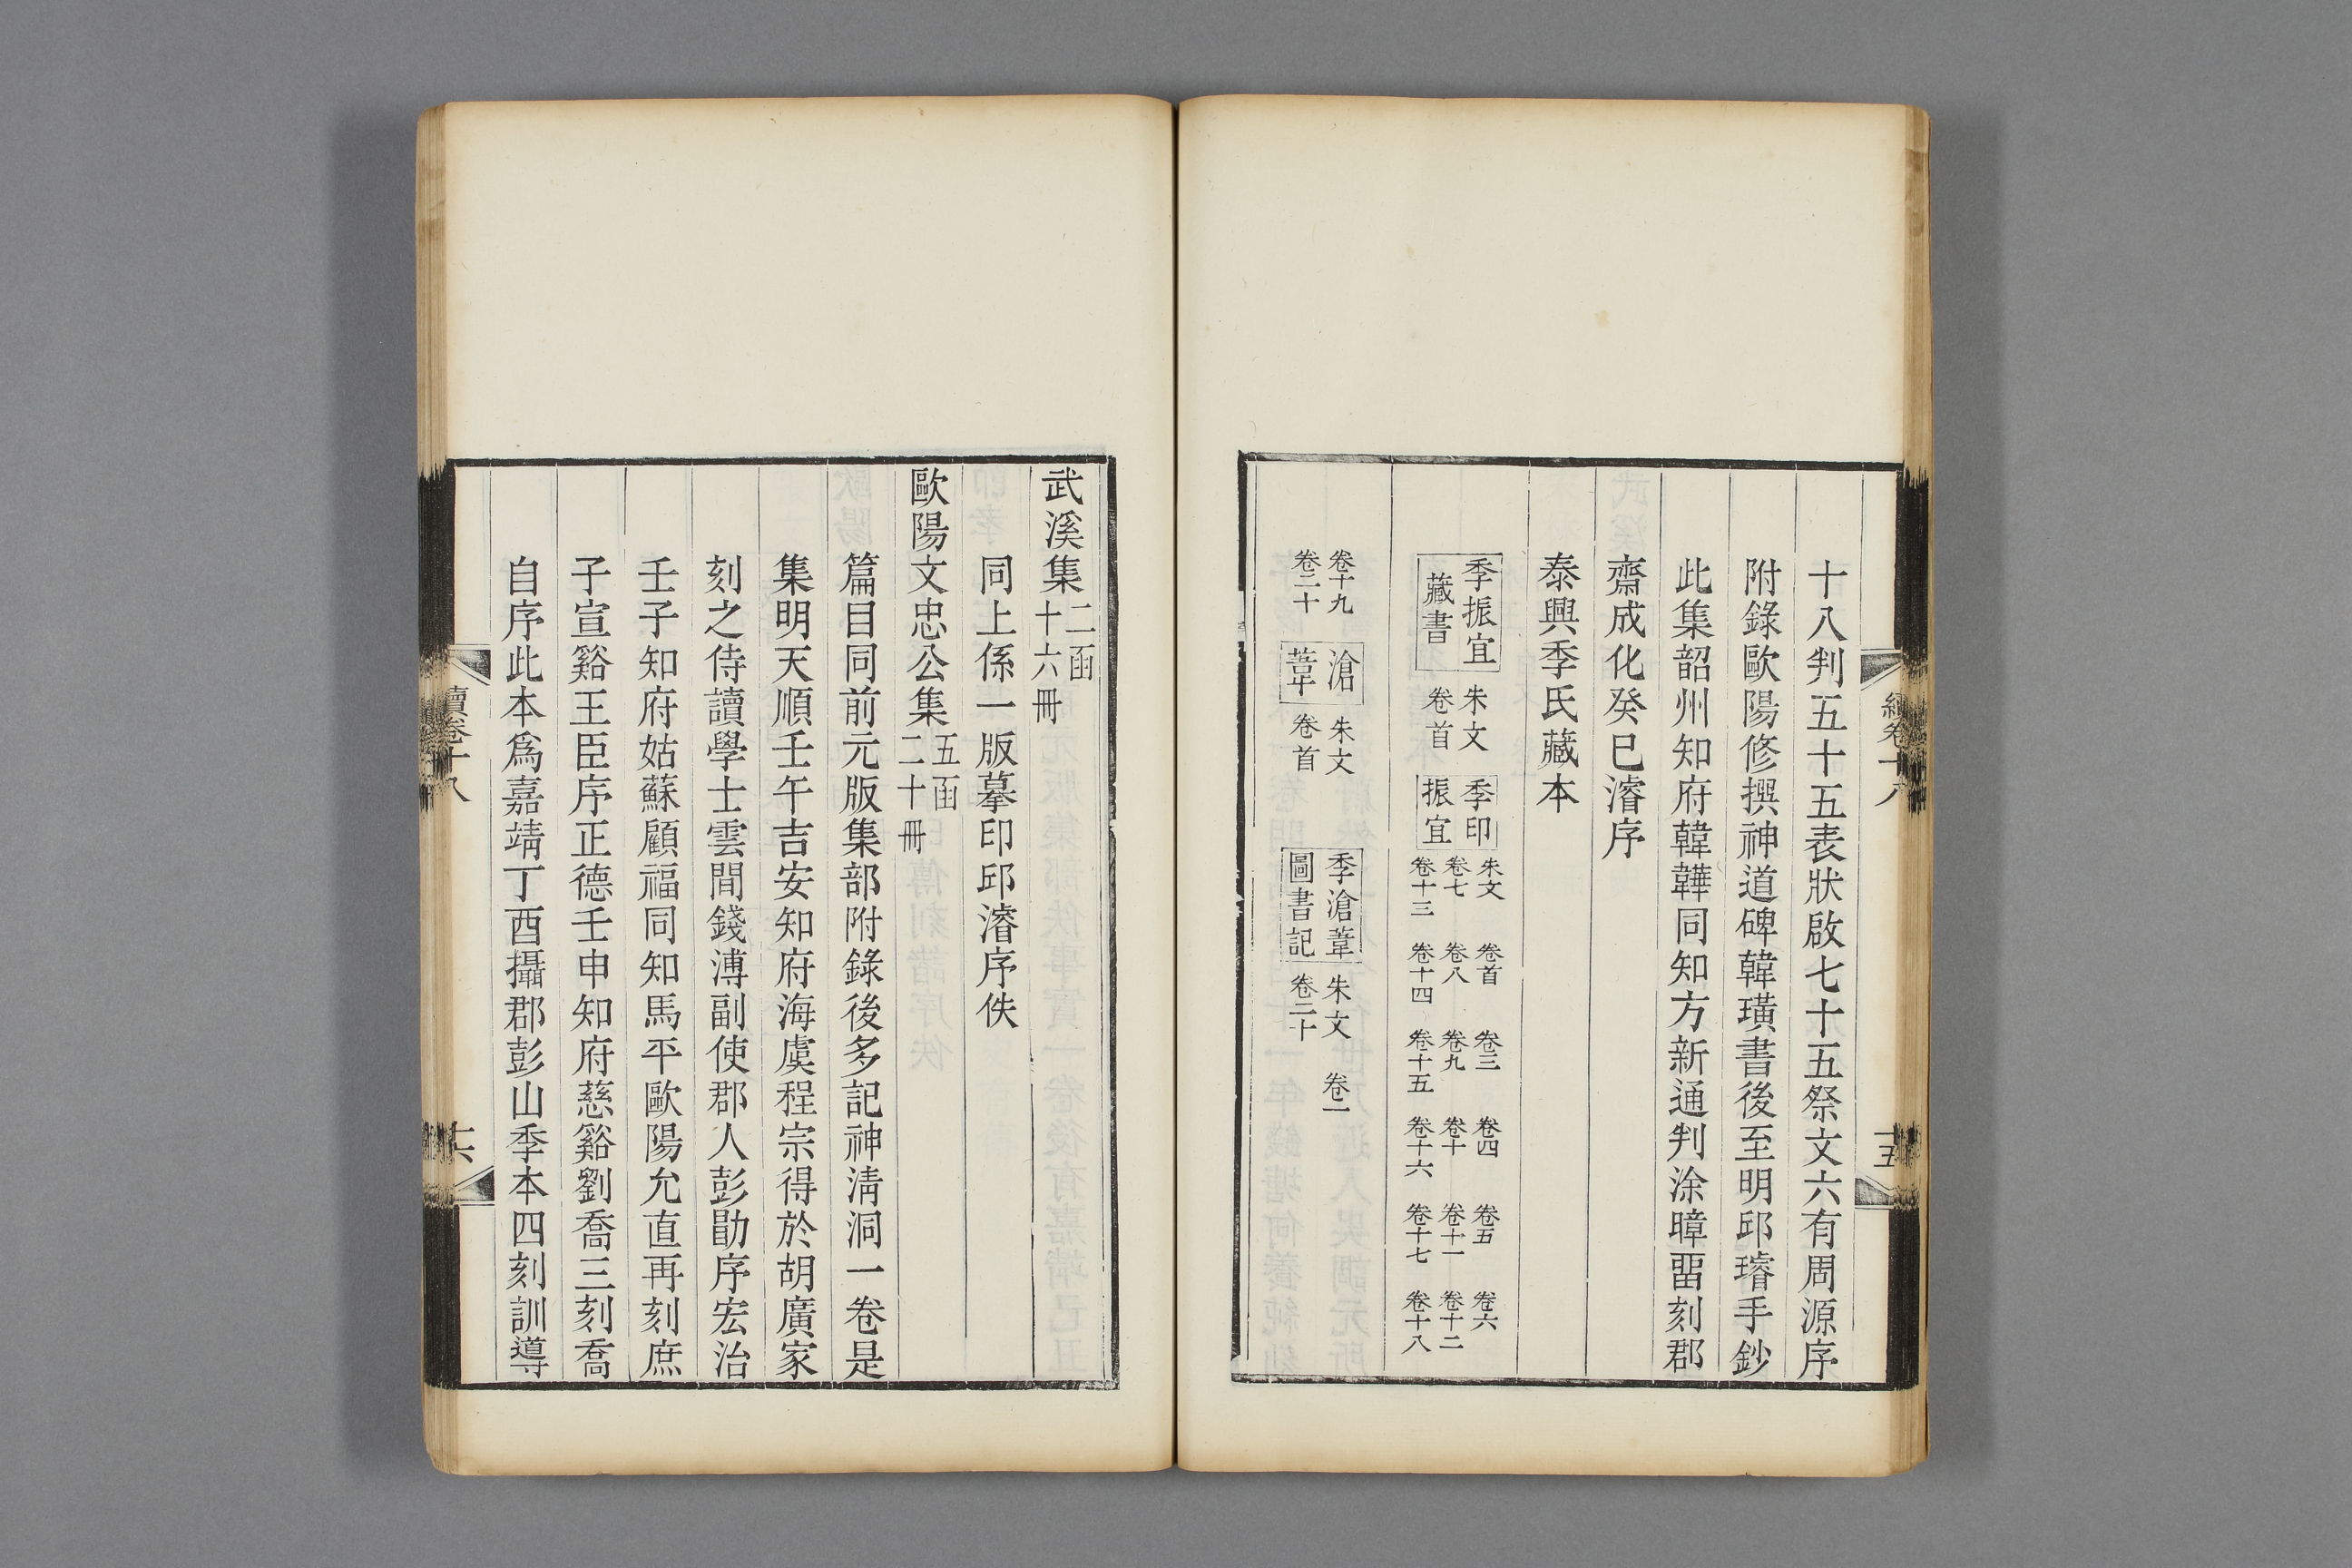 十八判五十五表狀啟七十五祭文六有周源序
附錄歐陽修撰神道碑韓璜書後至明邱璿手鈔
此集韶州知府韓鞾同知方新通判涂暲畱刻郡
齋成化癸巳濬序
泰興季氏藏本
季振宜
藏書
朱文
卷首
季印
振宜
朱文 卷首 卷三 卷四 卷五 卷六
卷七 卷八 卷九 卷十 卷十一 卷十二
卷十三 卷十四 卷十五 卷十六 卷十七 卷十八
卷十九
卷二十
滄
葦
朱文
卷首
季滄葦
圖書記
朱文 卷一
卷二十
續卷十八
十五
武溪集 二函
十六冊
同上係一版摹印邱濬序佚
歐陽文忠公集 五函
二十冊
篇目同前元版集部附錄後多記神清洞一卷是
集明天順壬午吉安知府海虞程宗得於胡廣家
刻之侍讀學士雲間錢溥副使郡人彭勖序宏治
壬子知府姑蘇顧福同知馬平歐陽允直再刻庶
子宣谿王臣序正德壬申知府慈谿劉喬三刻喬
自序此本爲嘉靖丁酉攝郡彭山季本四刻訓導
續卷十八
十六